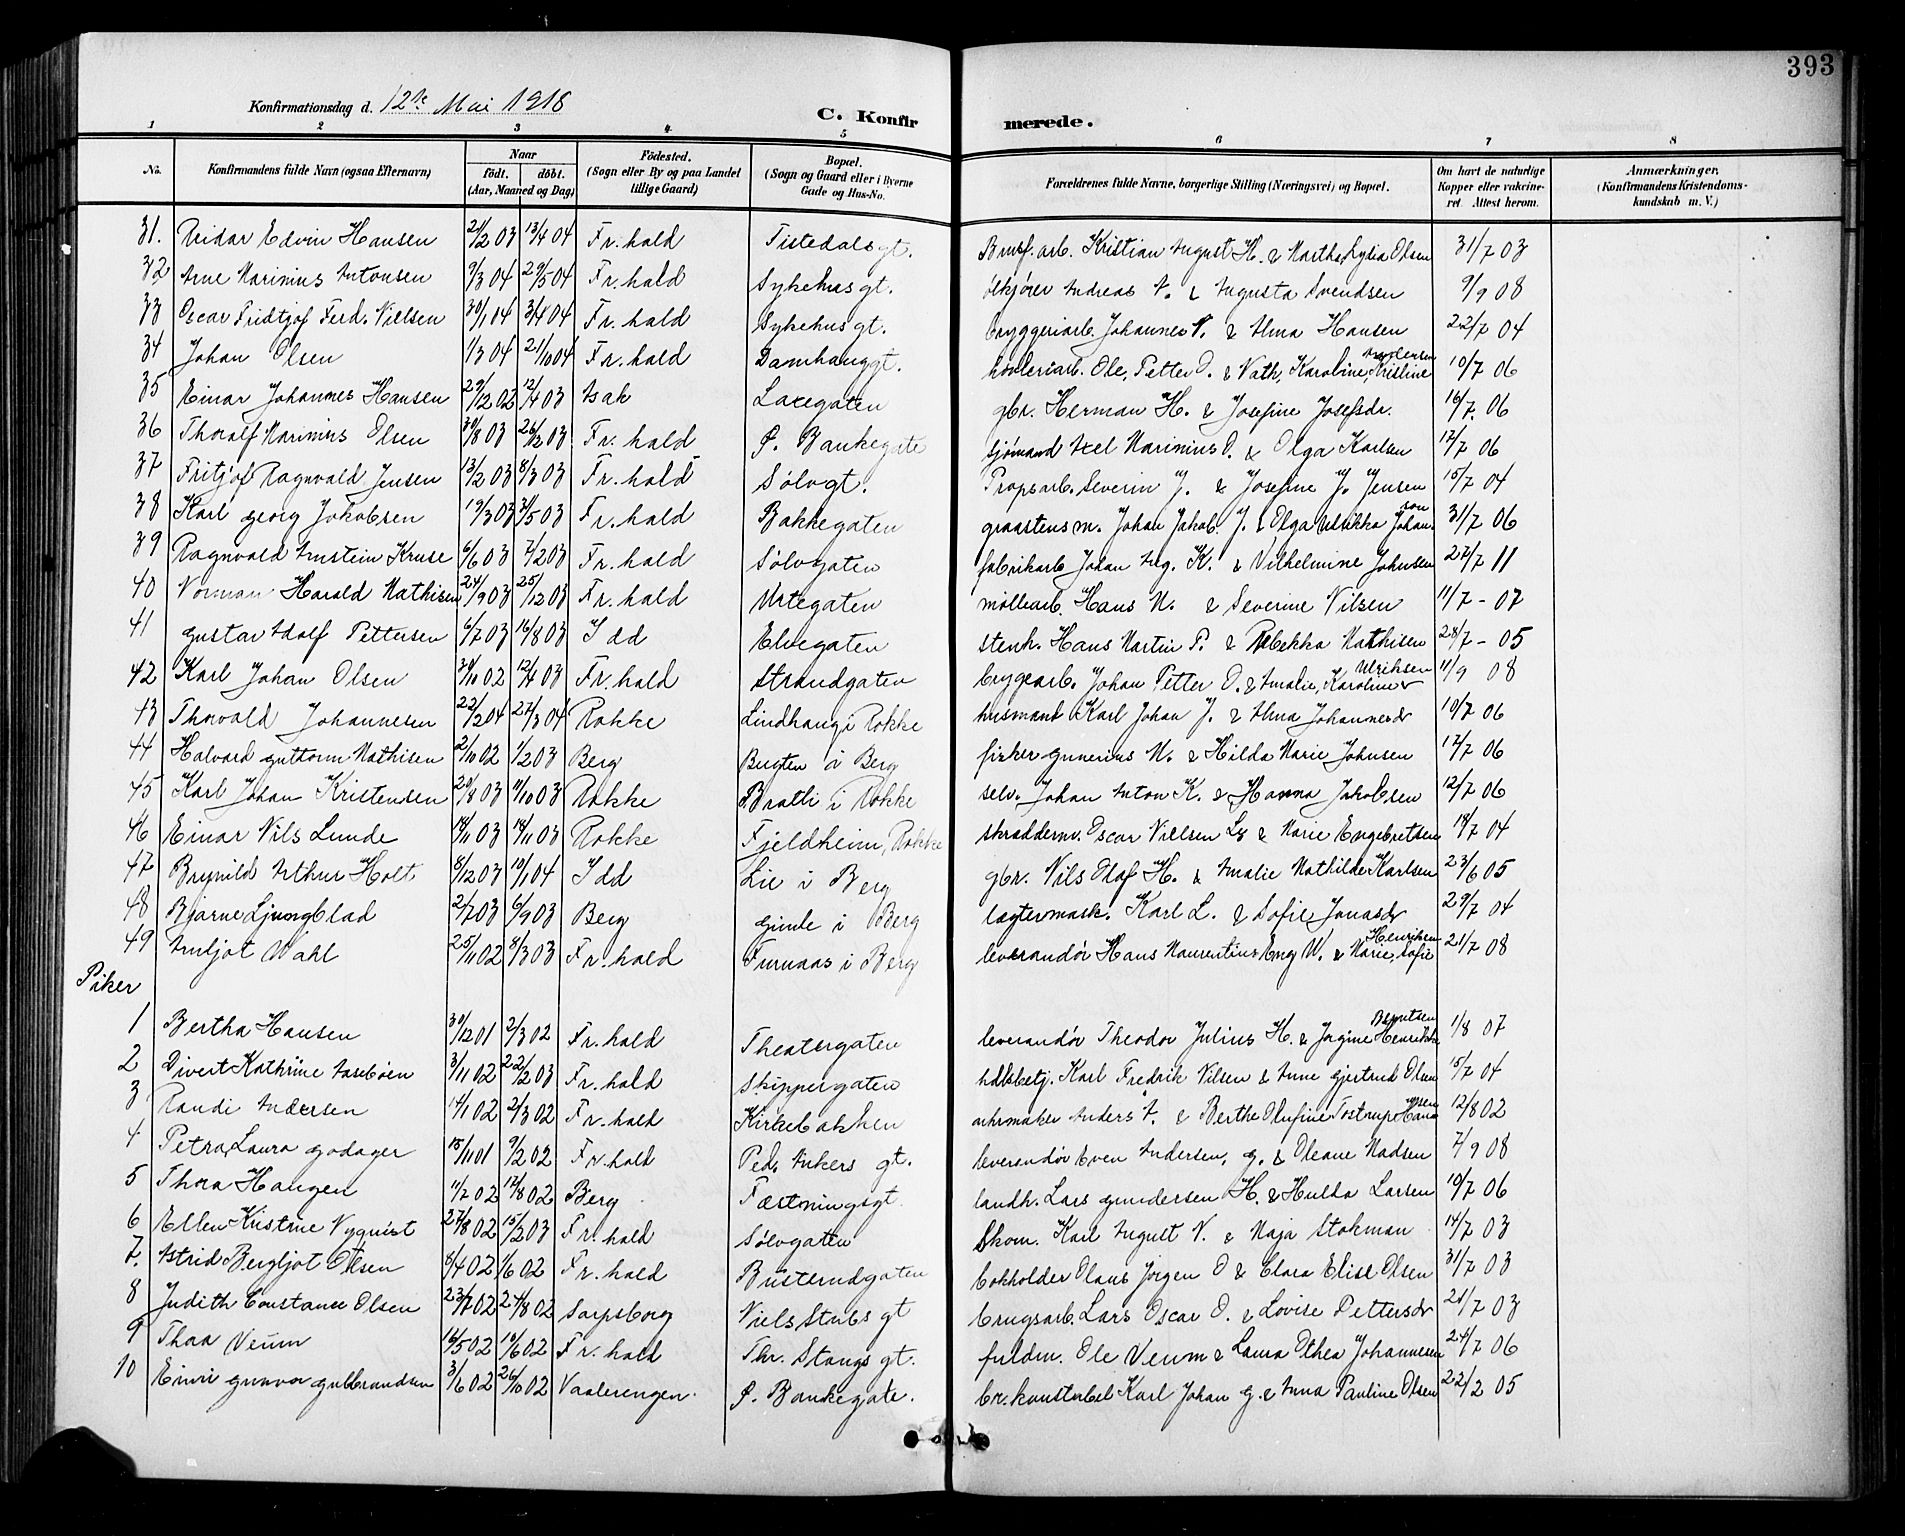 393
Konfirmationsdag d. 12te Mai 1918
C. Konfirmerede.
1 2 3 4 5 6 7 8
No. Konfirmandens fulde Navn (ogsaa Efternavn) Naar födt. döbt. (Aar, Maaned og Dag) Födested. (Sogn eller By og paa Landet tillige Gaard) Bopæl. (Sogn og Gaard eller i Byerne Gade og Hus-No. Forældrenes fulde Navne, borgerlige Stilling (Næringsvei) og Bopæl. Om havt de naturlige Kopper eller vakcineret. Attest herom. Anmærkninger. (Konfirmandens Kristendomskundskab m. V.)
31. Reidar Edvin Hansen 21/2 03 13/4 04 Fr.hald Tistedalsgt. Kristian August H. & Martha Lydia Olsen 31/7 03
32 Arne Marinius Antonsen 9/3 04 29/5 04 Fr.hald Sykehusgt. ølkjører Andreas A. & Augusta Svendsen 9/9 08
33 Oscar Fridtjof Ferd. Nielsen 30/1 04 3/4 04 Fr.hald Sykehusgt. bryggeriarb. Johannes N. & Alma Hansen 22/7 04
34 Johan Olsen 1/3 04 21/10 04 Fr.hald Damhauggt. høvleriarb. Ole Petter O. & Nath. Karoline Kristine Andersen 10/7 06
35 Einar Johannes Hansen 29/12 02 12/4 03 Asak Laxegaten gbr. Herman H. & Josefine Josefsdr. 16/7 06
36 Thoralf Marinius Olsen 30/8 03 26/2 03 Fr.hald P. Bankegate sjømand Axel Marinius O. & Olga Karlsen 12/7 06
37 Fritjof Ragnvald Jensen 13/2 03 8/3 03 Fr.hald Sølvgt. Propsarb. Severin J. & Josefine J. Jensen 15/7 04
38 Karl Georg Jakobsen 19/3 03 31/5 03 Fr.hald Bakkegaten graastensm. Johan Jakob J. & Olga Ulrikka Johanson 31/7 06
39 Ragnvald Arnstein Kruse 6/6 03 7/2 03 Fr.hald Sølvgaten fabrikarb. Johan Aug. K. & Vilhelmine Johnsen 22/7 11
40 Norman Harald Mathisen 24/9 03 25/12 03 Fr.hald Urtegaten møllearb. Hans M. & Severine Nilsen 11/7 - 07
41 Gustav Adolf Pettersen 6/7 03 16/8 03 Idd Elvegaten stenh. Hans Martin P. & Rebekka Mathisen 28/7 - 05
42 Karl Johan Olsen 30/10 02 12/4 03 Fr.hald Strandgaten brygearb. Johan Petter O. & Amalie Karoline Ulriksen 11/9 08
43 Thorvald Johannesen 22/2 04 27/3 04 Rokke Lindhaug i Rokke husmand Karl Johan J. & Alma Johannesdr 10/7 06
44 Halvard Guttorm Mathisen 2/10 02 1/2 03 Berg Bugten i Berg fisker Gunerius M. & Hilda Marie Johnsen 17/7 06
45 Karl Johan Kristensen 20/8 03 11/10 03 Rokke Bratli i Rokke selv. Johan Anton K. & Hanna Jakobsen 12/7 06
46 Einar Nils Lunde 18/11 03 Rokke Fjeldheim, Rokke skræddermr. Oscar Nielsen L & Marie Engebretsen 18/7 04
47 Brynild Arthur Holt 8/12 03 10/1 04 Idd Lie i Berg gbr. Nils Olaf H. & Amalie Mathilde Karlsen 23/6 05
48 Bjarne Ljungblad 2/7 03 6/9 03 Berg Gimle i Berg Karl L. & Sofie Jonasdr 29/7 04
49 Arnljot Wahl 25/11 02 8/3 03 Fr.hald Furnaas i Berg leverandør Hans Maurentius Eng W. & Marie Sofie Henriksen 21/7 08
Piker
1 Bertha Hansen 30/12 01 2/3 02 Fr.hald Theatergaten leverandør Theodor Julius H. & Jørgine Henrikke Berntsen 1/8 07
2 Divert Kathrine 3/11 02 22/2 03 Fr.hald Skippergaten hdlsbetj. Karl Fredrik Nilsen & Anne Gjertrud Olsen 15/7 04
3 Randi Andersen 14/1 02 2/3 02 Fr.hald Kirkebakken urmaker Anders A. & Berthe Olufine Tostrup Hansen 12/8 02
4 Petra Laura Godager 18/11 01 9/2 02 Fr.hald Ped. Ankers gt. leverandør Even Andersen G. & Oleane Madsen 7/9 08
5 Thora Haugen 11/7 02 17/8 02 Berg Fæstningsgt. landh. Lars Gundersen H. & Hulda Larsen 19/7 06
6 Ellen Kristine Nyquist 27/8 02 15/2 03 Fr.hald Sølvgaten Skom. Karl August N. & Maja Stokman 14/7 03
7. Astrid Bergljot Olsen 8/4 02 1/6 02 Fr.hald Busterudgaten bokholder Olaus Jørgen O & Clara Elise Olsen 31/7 03
8 Judith Constance Olsen 23/7 02 24/8 02 Sarpsborg Niels Stubs gt brugsarb. Lars Oscar O. & Lovise Pettersdr 21/7 03
9 Thea Veum 16/5 02 10/6 02 Fr.hald Thr. Stangs gt. fuldm. Ole Veum & Laura Othea Johannesen 24/7 06
10 Einri Gunvor Gulbrandsen 3/6 02 26/10 02 Vaalerengen. P. Bankegate. br.konstabel Karl Johan G. & Anna Pauline Olsen 22/2 05